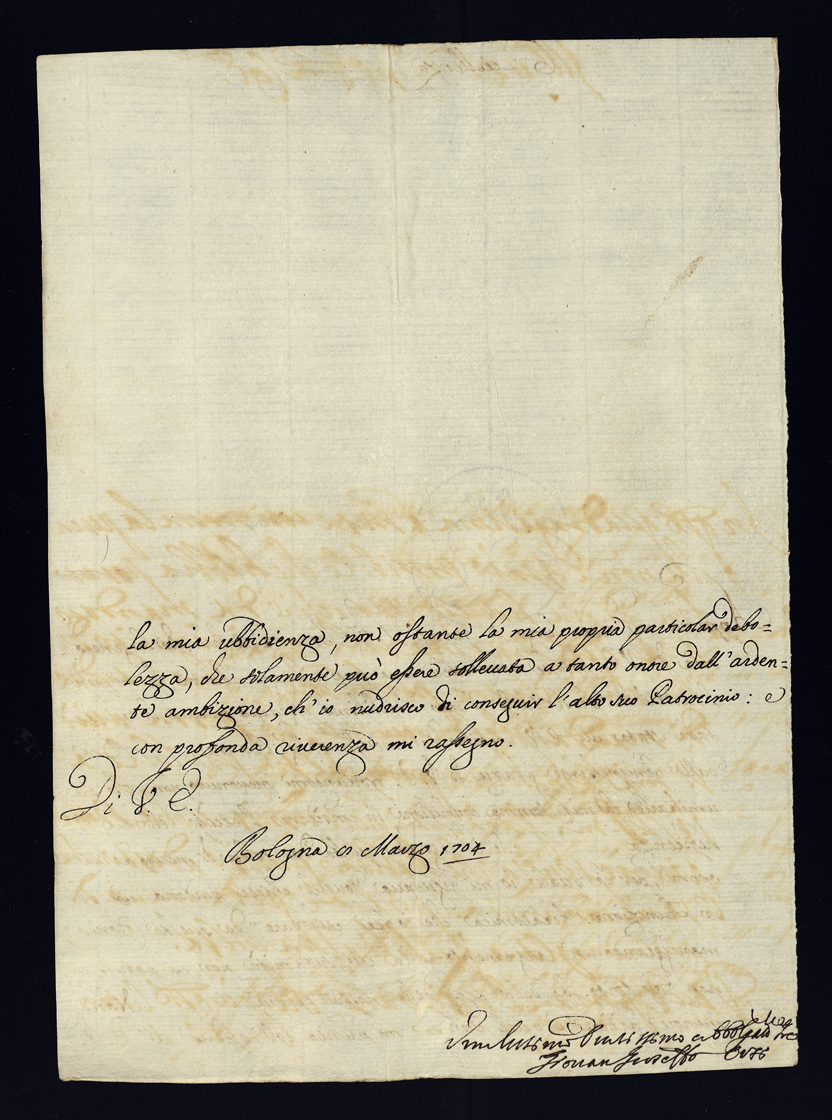 la mia ubbidienza, non ostante la mia propria particolar debo=
lezza, che solamente può essere sollevata a tanto onore dall'arden=
te ambizione, ch'io nudrisco di conseguir l'alto suo Patrocinio: e
con profonda riverenza mi rassegno.
Di V. E.
Bologna Marzo 1704
Giovan Gioseffo Orsi